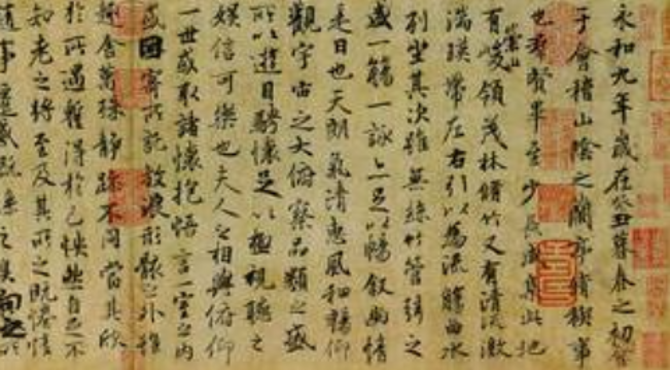 永和九年歲在癸丑暮春之初會
于會稽山陰之蘭亭脩禊事
也羣賢畢至少長咸集此地
有崇山峻領茂林脩竹又有清流激
湍暎帶左右引以為流觴曲水
列坐其次雖無絲竹管弦之
盛一觴一詠亦足以暢敘幽情
是日也天朗氣清惠風和暢仰
觀宇宙之大俯察品類之盛
所以遊目騁懷足以極視聽之
娛信可樂也夫人之相與俯仰
一世或取諸懷抱悟言一室之內
或因寄所託放浪形骸之外雖
趣舍萬殊靜躁不同當其欣
於所遇暫得於己怏然自足不
知老之將至及其所之既惓情
隨事遷感慨係之矣向之所